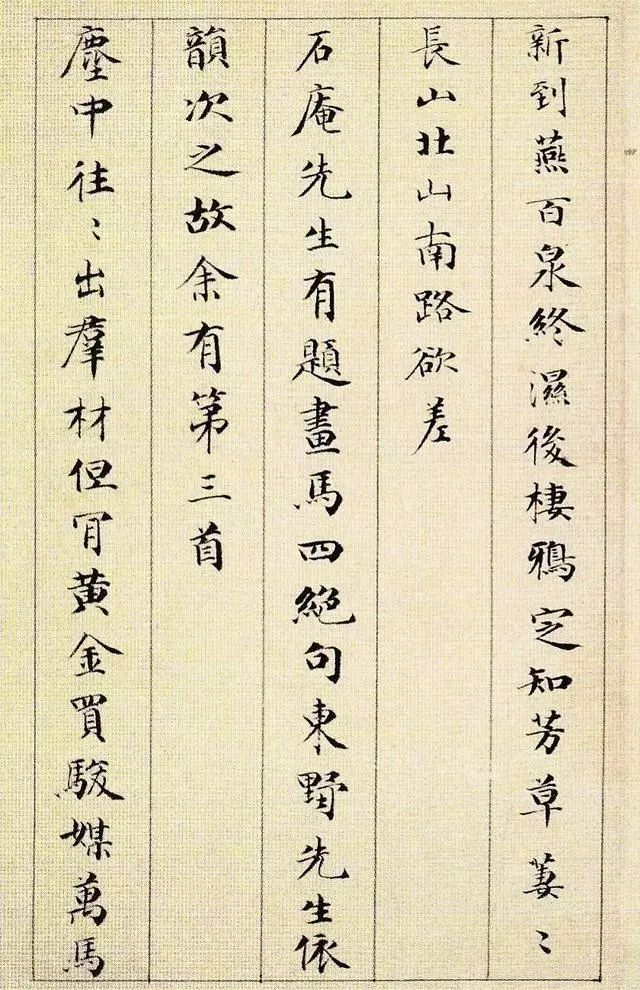 新到燕百泉終濕後棲鴉定知芳草萋〻
長山北山南路欲差
石庵先生有題畫馬四絕句東野先生依
韻次之故余有第三首
塵中往〻出羣材但有黃金買駿媒萬馬